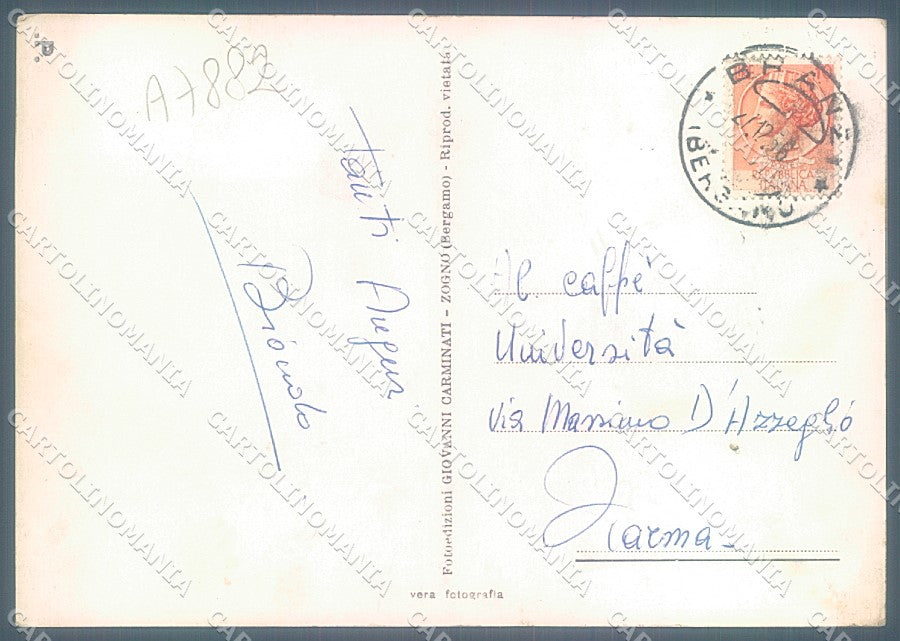 A7882
Tanti Auguri
Fotoedizioni GIOVANNI CARMINATI - ZOGNO (Bergamo) - Riprod. vietata
vera fotografia
BRANZI
(BERGAMO)
REPUBBLICA
ITALIANA
Al caffè
Università
Via Massimo D'Azzeglio
Parma
CARTOLINOMANIA